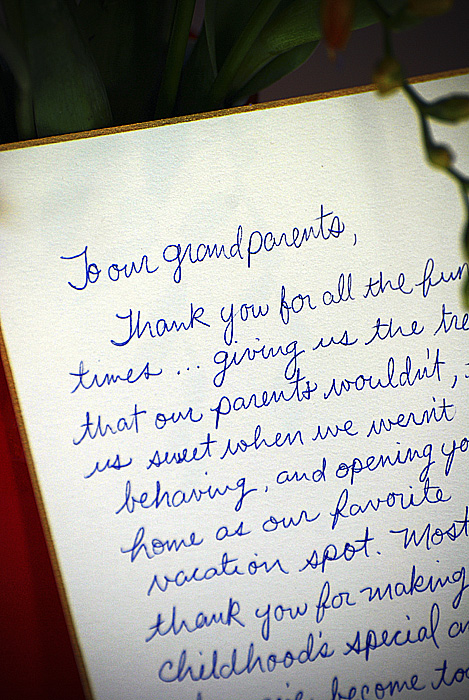 To our grandparents,
Thank you for all the fun
times ... giving us the tre
that our parents wouldn't,
us sweet when we wern't
behaving, and opening yo
home as our favorite
vacation spot. Most
thank you for making
childhood's special an
become to